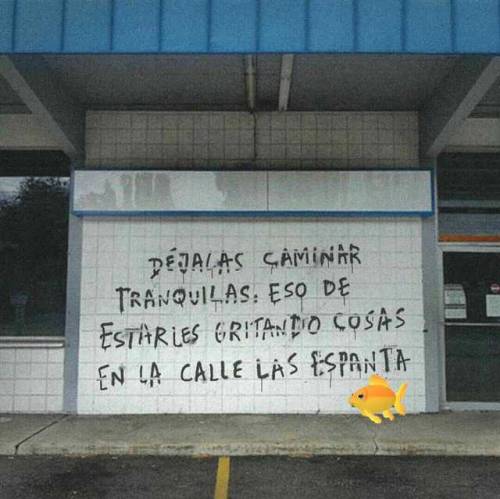 DÉJALAS CAMINAR
TRANQUILAS. ESO DE
ESTARLES GRITANDO COSAS
EN LA CALLE LAS ESPANTA